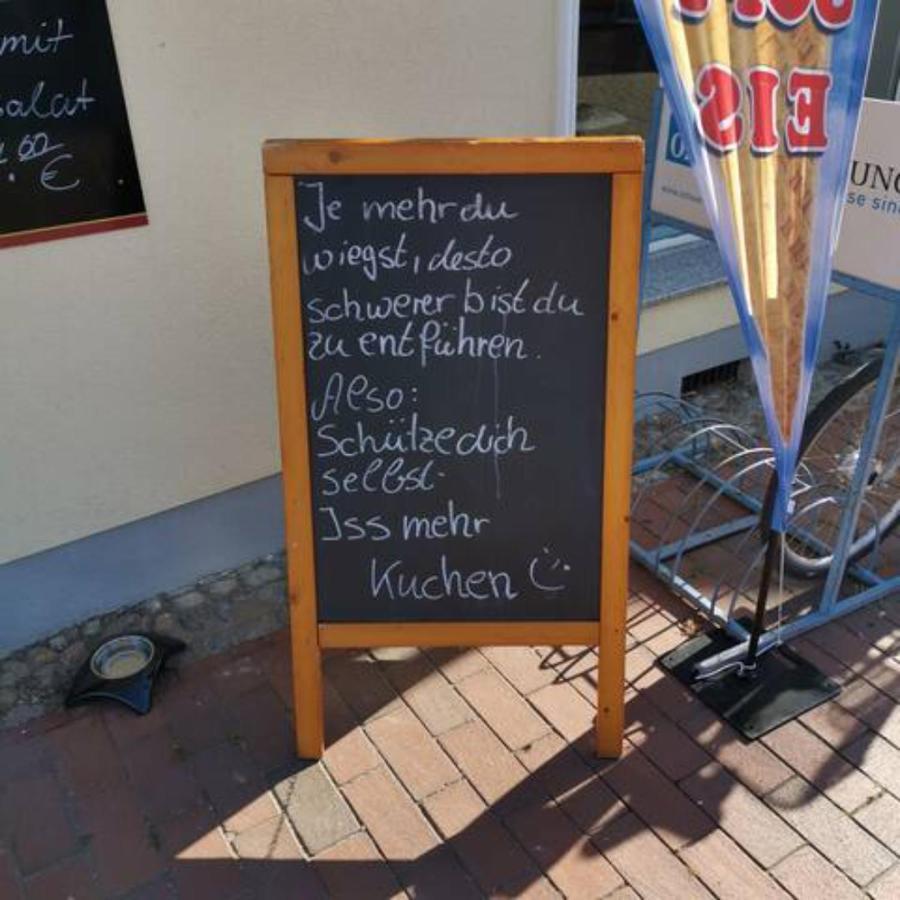 mit
salat
60
€
Je mehr du
wiegst, desto
schwerer bist du
zu entführen.
Also:
Schütze dich
selbst.
Iss mehr
Kuchen
EIS
UNG
se sind